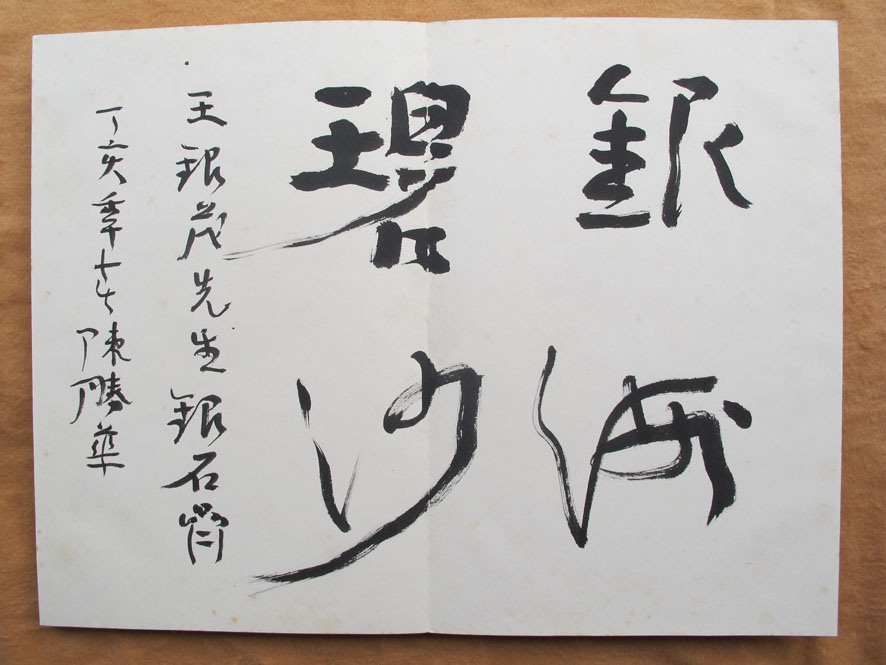 銀河
碧沙
王銀茂先生銀石齋
丁亥年十七陳勝華